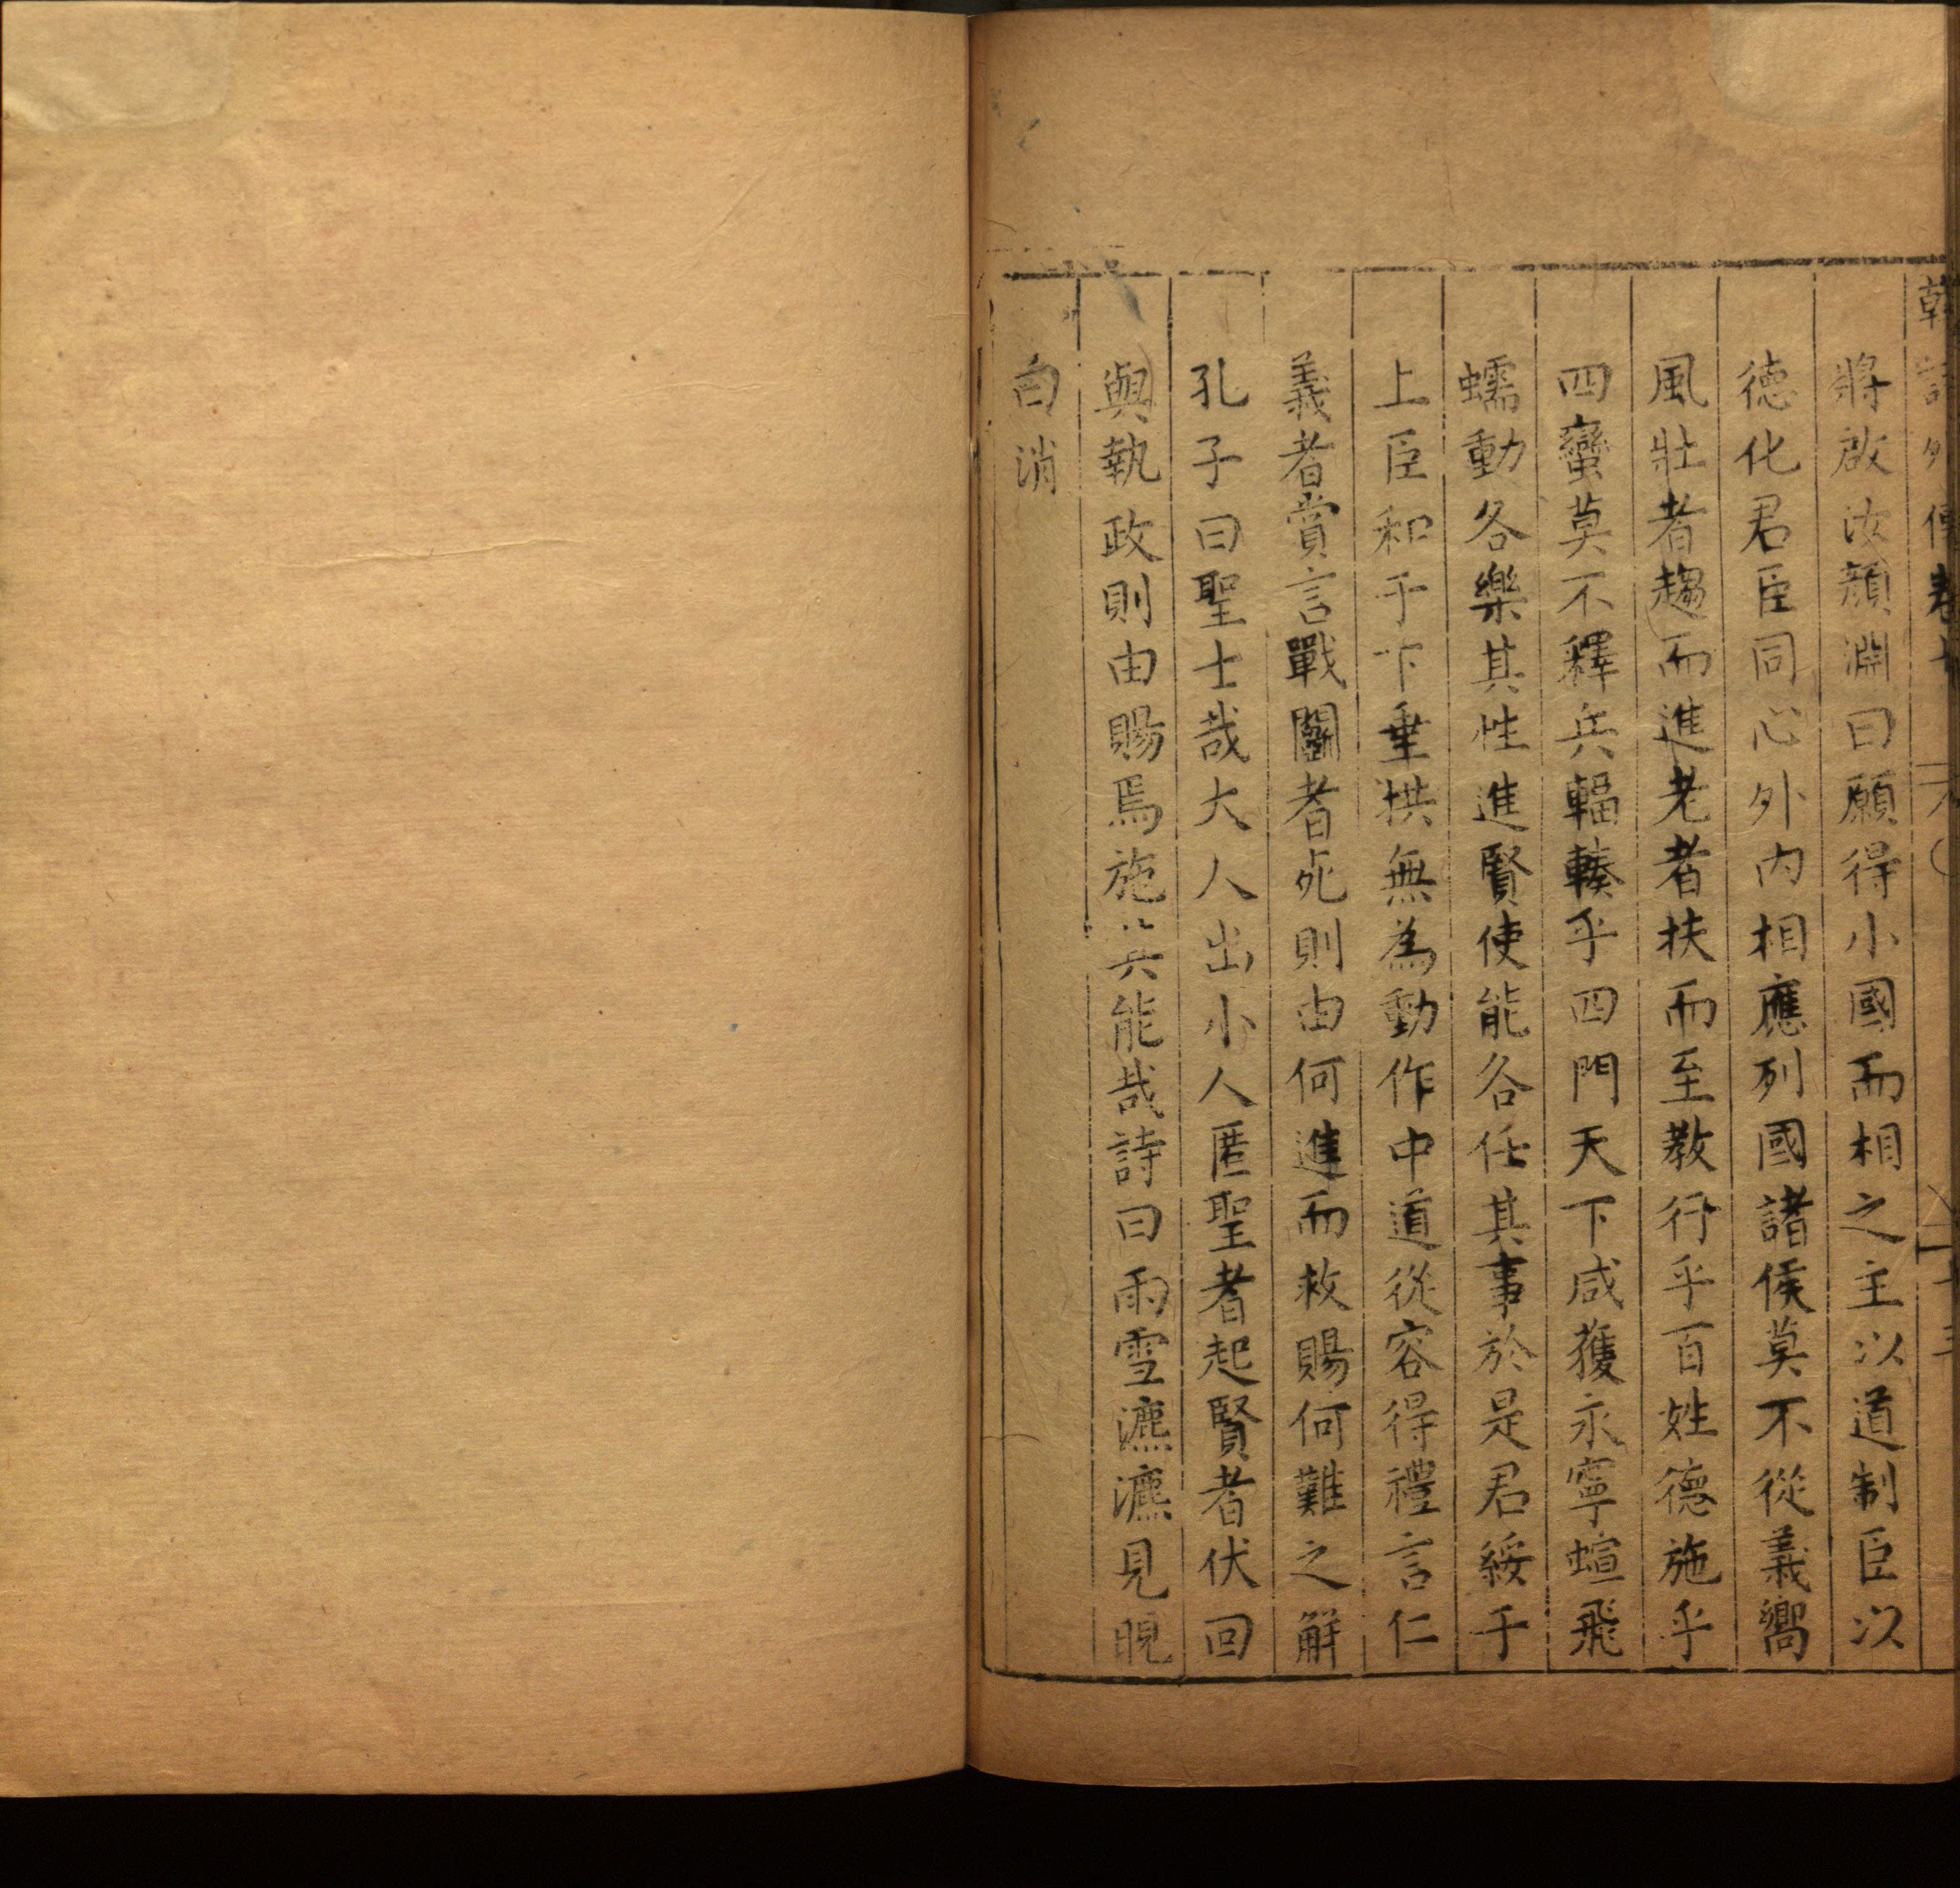 韓詩外傳卷七
將啟汝顏淵曰願得小國而相之主以道制臣以
德化君臣同心外內相應列國諸侯莫不從義嚮
風壯者趨而進老者扶而至教行乎百姓德施乎
四蠻莫不釋兵輻輳乎四門天下咸獲永寧蝖飛
蠕動各樂其性進賢使能各任其事於是君綏于
上臣和于下垂拱無為動作中道從容得禮言仁
義者賞言戰鬭者死則由何進而救賜何難之解
孔子曰聖士哉大人出小人匿聖者起賢者伏回
與執政則由賜焉施其能哉詩曰雨雪瀌瀌見晛
曰消